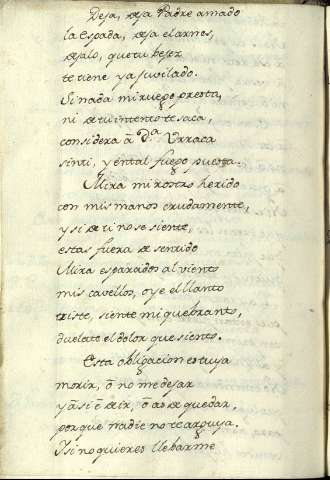 Deja, deja Padre amado
la espada, deja el arnes,
dejalo, que tu vejez
te tiene ya jubilado.
Si nada mi ruego presta,
ni de tu intento te saca,
considera â D.ª Urraca
sinti, y en tal fuego puesta.
Mira mi rostro herido
con mis manos crudamente,
y si de ti no se siente,
estas fuera de sentido
Mira esparcidos al viento
mis cavellos, oye el llanto
triste, siente mi quebranto,
duelate el dolor que siento.
Esta obligacion es tuya
morir, ô no me dejar
y âsi ê de ir, ô as de quedar,
porque nadie no te arguya.
Y si no quieres llebarme